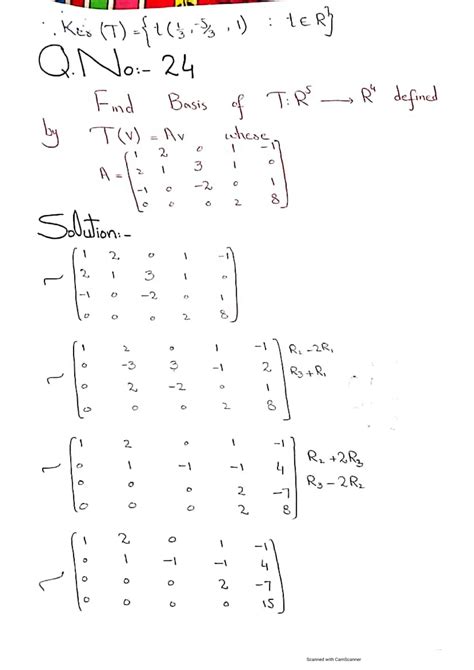 ∴ Ker (T) = { t(1/3, -5/3, 1) : t ∈ R }
Q.No:- 24
Find Basis of T: R⁵ → R⁴ defined
by T(v) = Av where
A = ( 1 2 0 1 -1
2 1 3 1 0
-1 0 -2 0 1
0 0 0 2 8 )
Solution:-
~ ( 1 2 0 1 -1
2 1 3 1 0
-1 0 -2 0 1
0 0 0 2 8 )
~ ( 1 2 0 1 -1
0 -3 3 -1 2 R₂ - 2R₁
0 2 -2 0 1 R₃ + R₁
0 0 0 2 8 )
~ ( 1 2 0 1 -1
0 1 -1 -1 4 R₂ + 2R₃
0 0 0 2 -7 R₃ - 2R₂
0 0 0 2 8 )
~ ( 1 2 0 1 -1
0 1 -1 -1 4
0 0 0 2 -7
0 0 0 0 15 )
Scanned with CamScanner